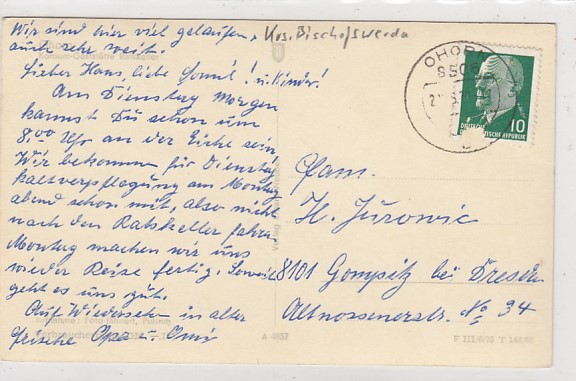 Wir sind hier viel gelaufen, Krs. Bischofswerda
auch sehr weit.
Konsum-Gaststätte Ratskeller
Lieber Hans, liebe Gonni! u. Kinder!
Am Dienstag Morgen
kannst Du schon um
8.00 Uhr an der Eiche sein
Wir bekommen für Dienstag
kaltverpflegung am Montag
abend schon mit, also nicht
nach den Ratskeller fahren
Montag machen wir uns
wieder Reise fertig. Soweit
geht es uns gut.
Auf Wiedersehn in alter
frische Opa u. Omi
OHORN
8506
DEUTSCHE
DEMOKRATISCHE REPUBLIK
10
Fam.
H. Jurowic
8101 Gompitz bei Dresden
Altnossenerstr. No 34
Verlag
A 4857